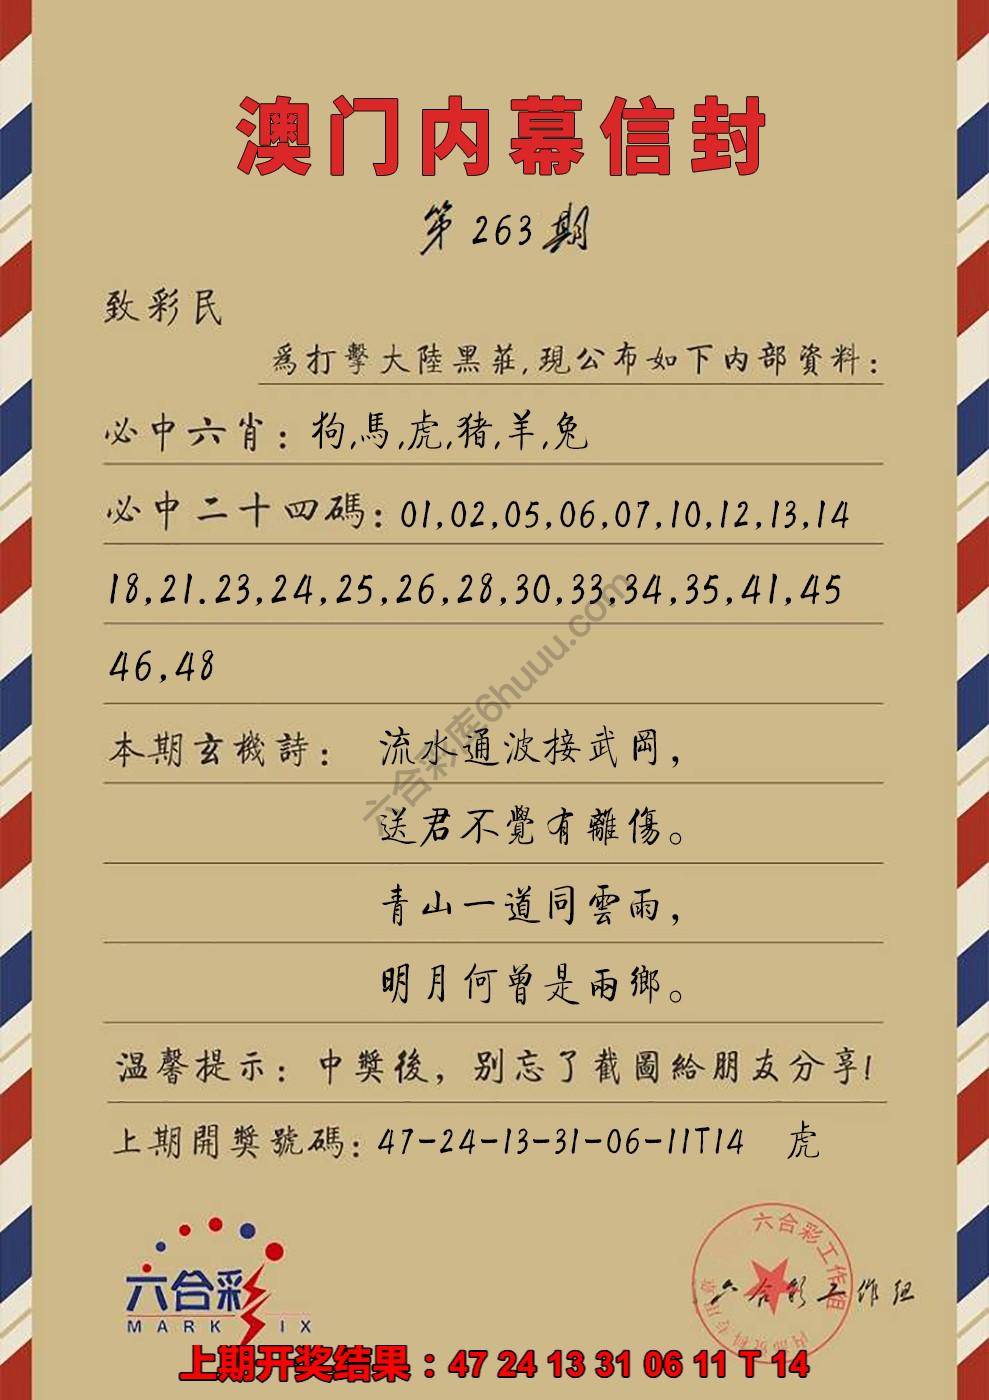 澳门内幕信封
第 263 期
致彩民
爲打擊大陸黑莊,現公布如下内部資料:
必中六肖: 狗,馬,虎,猪,羊,兔
必中二十四碼: 01,02,05,06,07,10,12,13,14
18,21.23,24,25,26,28,30,33,34,35,41,45
46,48
本期玄機詩: 流水通波接武岡,
送君不覺有離傷。
青山一道同雲雨,
明月何曾是兩鄉。
温馨提示: 中獎後, 别忘了截圖給朋友分享!
上期開獎號碼: 47-24-13-31-06-11T14 虎
六合彩库6huuu.com
六合彩
MARK SIX
六合彩工作组
六合彩工作组
上期开奖结果:47 24 13 31 06 11 T 14